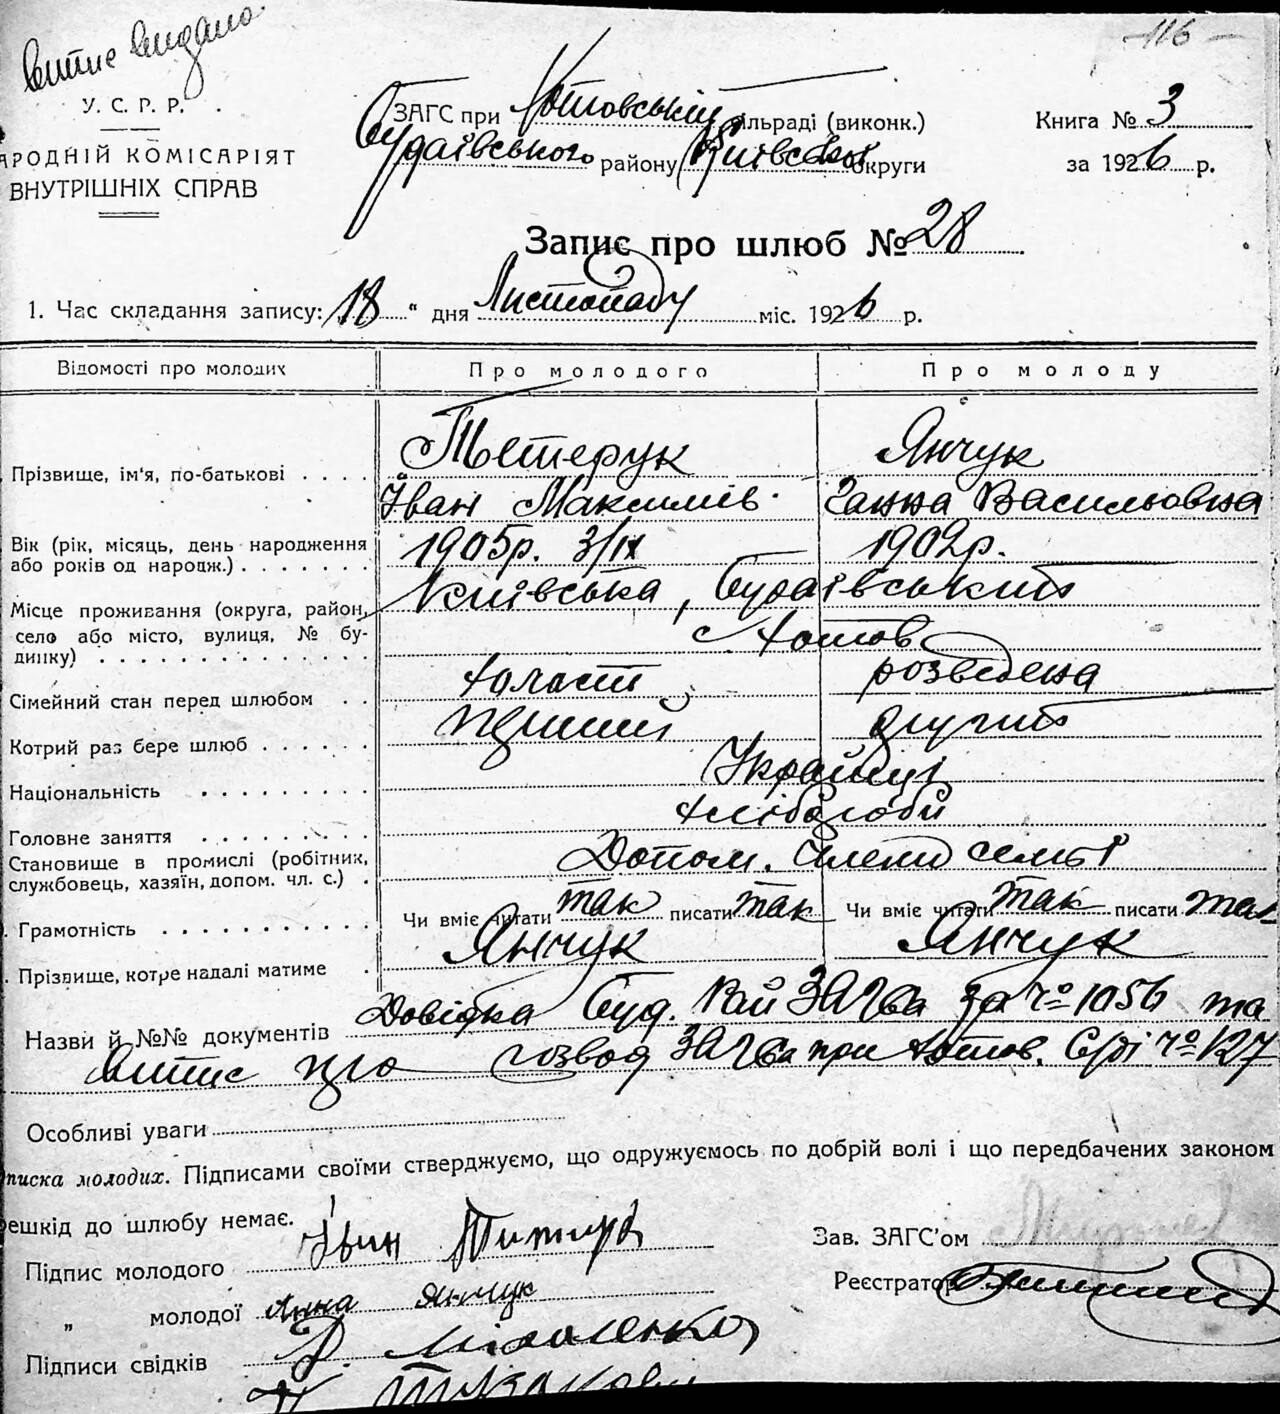 витис видано
116
У. С. Р. Р.
АРОДНІЙ КОМІСАРІЯТ
ВНУТРІШНІХ СПРАВ
ЗАГС при Хотовській сільраді (виконк.)
Будаївського району Київської округи
Книга № 3
за 1926 р.
Запис про шлюб № 28
1. Час складання запису: 18 " дня Листопаду міс. 1926 р.
Відомості про молодих Про молодого Про молоду
Прізвище, ім'я, по-батькові . . . . Тетерук Янчук
Іван Максимів. Ганна Васильовна
Вік (рік, місяць, день народження або років од народж.) . . . . . . . 1905р. 3/IX 1902р.
Місце проживання (округа, район, село або місто, вулиця, № будинку) . . . . . . . . . . . . . . Київська, Будаївський
с. Хотов
Сімейний стан перед шлюбом . . холост розведена
Котрий раз бере шлюб . . . . . . перший другий
Національність . . . . . . . . . Українці
Головне заняття . . . . . . . . . хлібороби
Становище в промислі (робітник, службовець, хазяїн, допом. чл. с.) . Допом. члени семьї
. Грамотність . . . . . . . . . . . Чи вміє читати так писати так Чи вміє читати так писати так
. Прізвище, котре надалі матиме . Янчук Янчук
Назви й №№ документів Довідка Буд. Рай ЗАГСа за № 1056 та
витис про розвод ЗАГСа при Хотов. С/ді № 127
Особливі уваги
писка молодих. Підписами своїми стверджуємо, що одружуємось по добрій волі і що передбачених законом
ешкід до шлюбу немає.
Підпис молодого Іван
" молодої Анна Янчук
Підписи свідків
Зав. ЗАГС'ом
Реєстратор